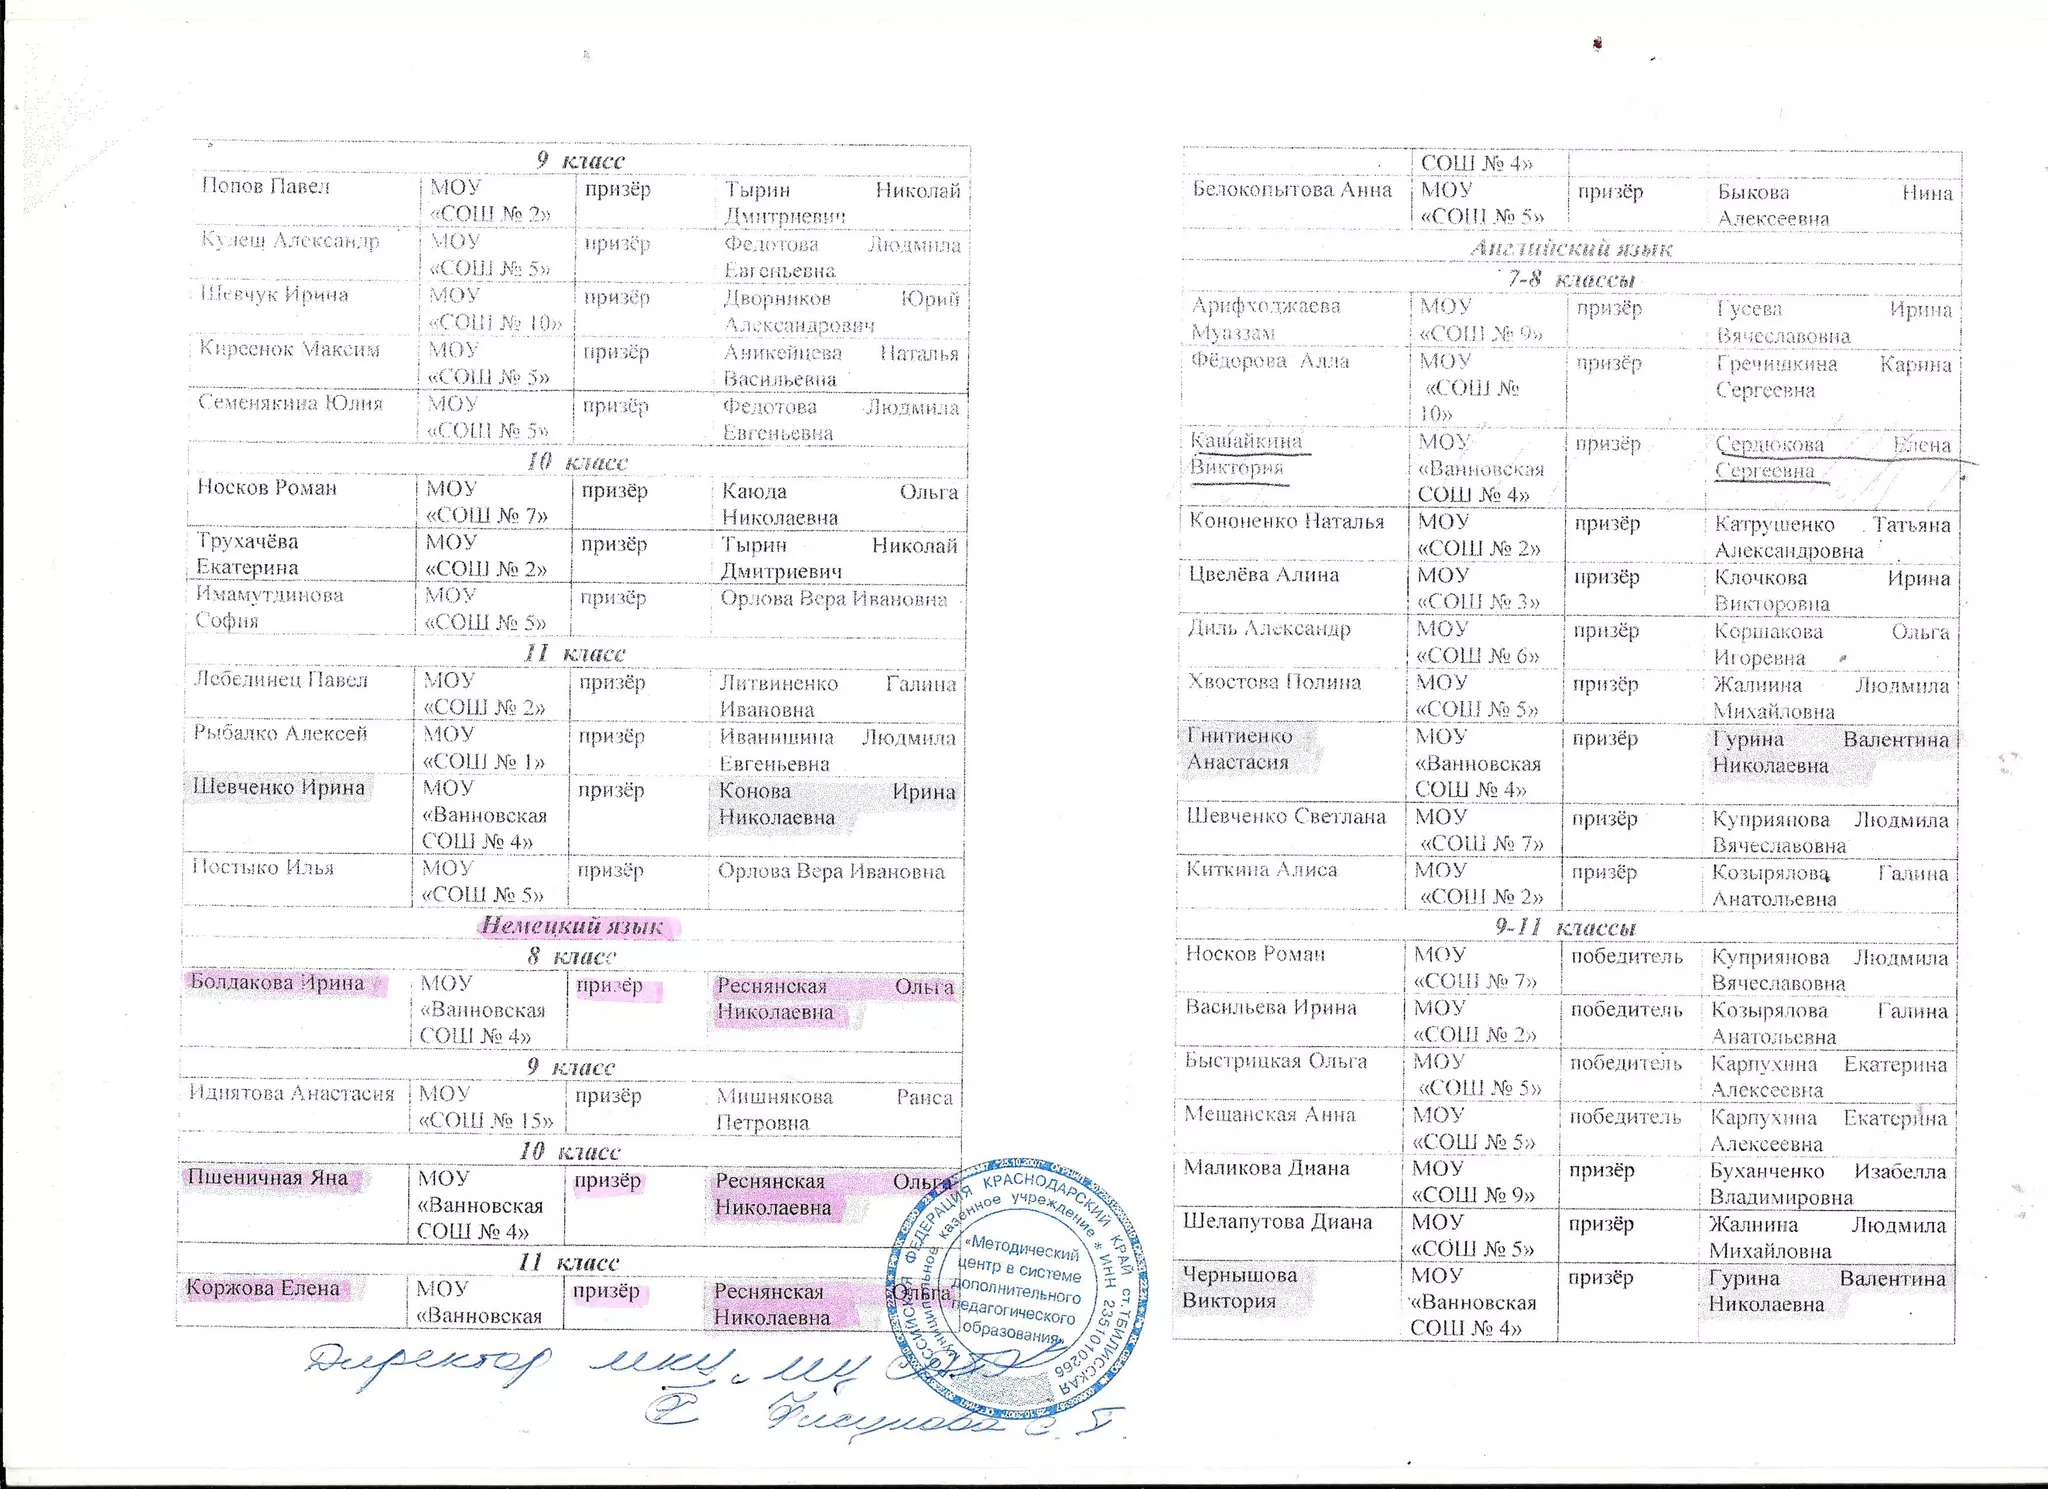 9 класс
Попов Павел МОУ призёр Тырин Николай
«СОШ № 2» Дмитриевич
Кулеш Александр МОУ призёр Федотова Людмила
«СОШ № 5» Евгеньевна
Шевчук Ирина МОУ призёр Дворников Юрий
«СОШ № 10» Александрович
Киреенок Максим МОУ призёр Аникейцева Наталья
«СОШ № 5» Васильевна
Семенякина Юлия МОУ призёр Федотова Людмила
«СОШ № 5» Евгеньевна
10 класс
Носков Роман МОУ призёр Каюда Ольга
«СОШ № 7» Николаевна
Трухачёва МОУ призёр Тырин Николай
Екатерина «СОШ № 2» Дмитриевич
Имамутдинова МОУ призёр Орлова Вера Ивановна
София «СОШ № 5»
11 класс
Лебединец Павел МОУ призёр Литвиненко Галина
«СОШ № 2» Ивановна
Рыбалко Алексей МОУ призёр Иванишина Людмила
«СОШ № 1» Евгеньевна
Шевченко Ирина МОУ призёр Конова Ирина
«Ванновская Николаевна
СОШ № 4»
Постыко Илья МОУ призёр Орлова Вера Ивановна
«СОШ № 5»
Немецкий язык
8 класс
Болдакова Ирина МОУ призёр Реснянская Ольга
«Ванновская Николаевна
СОШ № 4»
9 класс
Идиятова Анастасия МОУ призёр Мишнякова Раиса
«СОШ № 15» Петровна
10 класс
Пшеничная Яна МОУ призёр Реснянская Ольга
«Ванновская Николаевна
СОШ № 4»
11 класс
Коржова Елена МОУ призёр Реснянская Ольга
«Ванновская Николаевна
РОССИЙСКАЯ ФЕДЕРАЦИЯ КРАСНОДАРСКИЙ КРАЙ ст. ТБИЛИССКАЯ
муниципальное казенное учреждение * ИНН 2351010266
«Методический
центр в системе
дополнительного
педагогического
образования»
Директор МКУ «МЦ
СОШ № 4»
Белокопытова Анна МОУ призёр Быкова Нина
«СОШ № 5» Алексеевна
Английский язык
7-8 классы
Арифходжаева МОУ призёр Гусева Ирина
Муаззам «СОШ № 9» Вячеславовна
Фёдорова Алла МОУ призёр Гречишкина Карина
«СОШ № Сергеевна
10»
Кашайкина МОУ призёр Сердюкова Елена
Виктория «Ванновская Сергеевна
СОШ № 4»
Кононенко Наталья МОУ призёр Катрушенко Татьяна
«СОШ № 2» Александровна
Цвелёва Алина МОУ призёр Клочкова Ирина
«СОШ № 3» Викторовна
Диль Александр МОУ призёр Коршакова Ольга
«СОШ № 6» Игоревна
Хвостова Полина МОУ призёр Жалнина Людмила
«СОШ № 5» Михайловна
Гнитиенко МОУ призёр Гурина Валентина
Анастасия «Ванновская Николаевна
СОШ № 4»
Шевченко Светлана МОУ призёр Куприянова Людмила
«СОШ № 7» Вячеславовна
Киткина Алиса МОУ призёр Козырялова Галина
«СОШ № 2» Анатольевна
9-11 классы
Носков Роман МОУ победитель Куприянова Людмила
«СОШ № 7» Вячеславовна
Васильева Ирина МОУ победитель Козырялова Галина
«СОШ № 2» Анатольевна
Быстрицкая Ольга МОУ победитель Карпухина Екатерина
«СОШ № 5» Алексеевна
Мещанская Анна МОУ победитель Карпухина Екатерина
«СОШ № 5» Алексеевна
Маликова Диана МОУ призёр Буханченко Изабелла
«СОШ № 9» Владимировна
Шелапутова Диана МОУ призёр Жалнина Людмила
«СОШ № 5» Михайловна
Чернышова МОУ призёр Гурина Валентина
Виктория «Ванновская Николаевна
СОШ № 4»